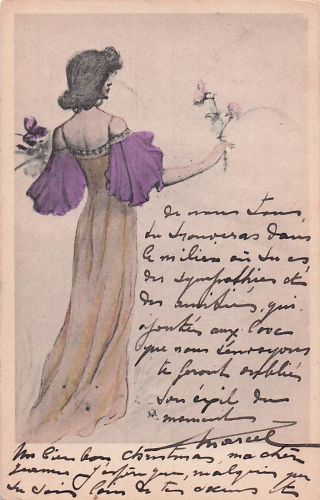 de nous tous,
tu trouveras dans
le milieu où tu es
des sympathies et
des amitiés, qui,
ajoutés aux love
que nous t'envoyons
te feront oublier
ton exil du
moment
Marcel
Un bien bon Christmas, ma chère
Jeanne. J'espère que, malgré que
tu sois loin de tes sœurs et